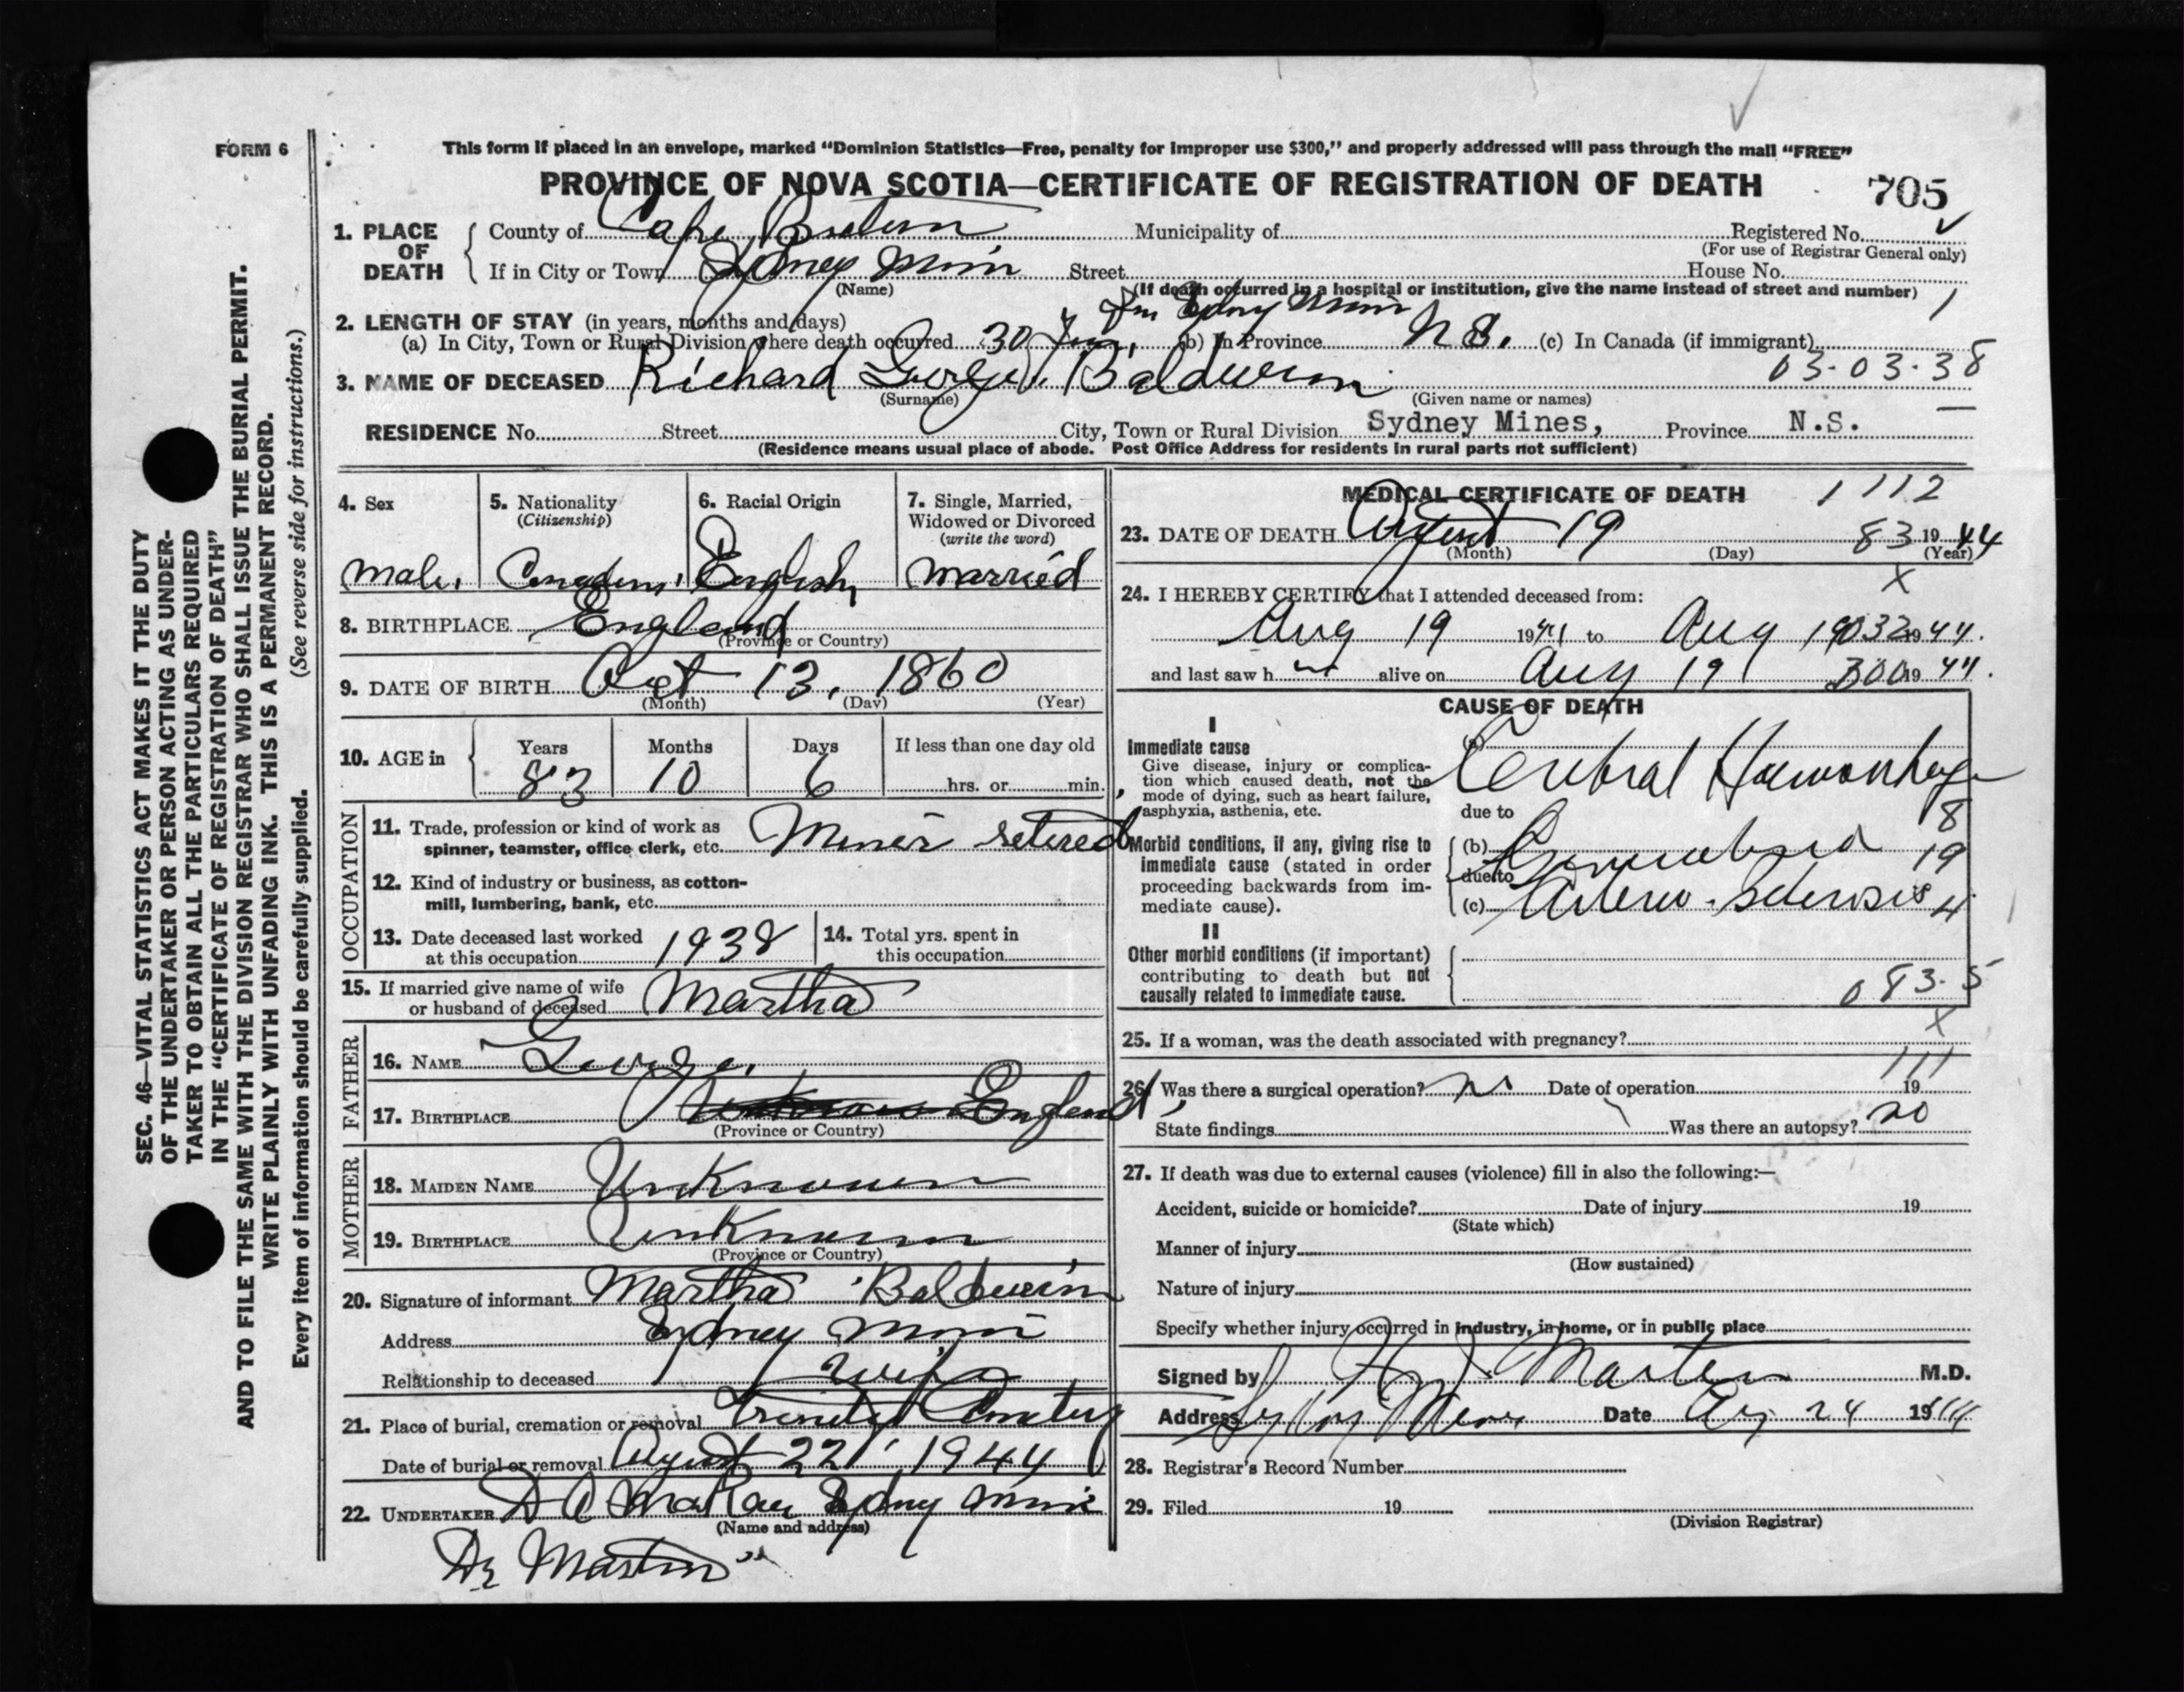 FORM 6
This form if placed in an envelope, marked “Dominion Statistics—Free, penalty for improper use $300,” and properly addressed will pass through the mail “FREE”
PROVINCE OF NOVA SCOTIA—CERTIFICATE OF REGISTRATION OF DEATH
705
1. PLACE OF DEATH
County of Cape Breton Municipality of Registered No.
(For use of Registrar General only)
If in City or Town Sydney Mines Street House No.
(Name)
(If death occurred in a hospital or institution, give the name instead of street and number)
2. LENGTH OF STAY (in years, months and days)
Sydney Mines
1
(a) In City, Town or Rural Division where death occurred 30 (b) In Province N.S. (c) In Canada (if immigrant)
03-03-38
3. NAME OF DECEASED Richard George Baldwin
(Surname) (Given name or names)
RESIDENCE No. Street City, Town or Rural Division Sydney Mines, Province N.S.
(Residence means usual place of abode. Post Office Address for residents in rural parts not sufficient)
4. Sex
male.
5. Nationality
(Citizenship)
6. Racial Origin
English
7. Single, Married,
Widowed or Divorced
(write the word)
married
8. BIRTHPLACE England
(Province or Country)
9. DATE OF BIRTH Oct 13, 1860
(Month) (Day) (Year)
10. AGE in
Years Months Days If less than one day old
83 10 6 hrs. or min.
OCCUPATION
11. Trade, profession or kind of work as
spinner, teamster, office clerk, etc. Miner retired
12. Kind of industry or business, as cotton-
mill, lumbering, bank, etc.
13. Date deceased last worked
at this occupation 1938
14. Total yrs. spent in
this occupation
15. If married give name of wife
or husband of deceased Martha
FATHER
16. NAME George.
17. BIRTHPLACE England
(Province or Country)
MOTHER
18. MAIDEN NAME Unknown
19. BIRTHPLACE Unknown
(Province or Country)
20. Signature of informant Martha Baldwin
Address Sydney Mines
Relationship to deceased Wife
21. Place of burial, cremation or removal Trinity Cemetery
Date of burial or removal August 22, 1944
22. UNDERTAKER Sydney Mines
(Name and address)
Dr Martin
MEDICAL CERTIFICATE OF DEATH
1112
23. DATE OF DEATH August 19 83 1944
(Month) (Day) (Year)
X
24. I HEREBY CERTIFY that I attended deceased from:
Aug 19 1944 to Aug 19 032 1944.
and last saw h im alive on Aug 19 300 1944.
CAUSE OF DEATH
I
Immediate cause
Give disease, injury or complica-
tion which caused death, not the
mode of dying, such as heart failure,
asphyxia, asthenia, etc.
(a) Cerebral Haemorrhage
due to
8
Morbid conditions, if any, giving rise to
immediate cause (stated in order
proceeding backwards from im-
mediate cause).
(b)
19
due to
(c) Arterio-Sclerosis
4
II
Other morbid conditions (if important)
contributing to death but not
causally related to immediate cause.
083-5
X
25. If a woman, was the death associated with pregnancy?
111
26. Was there a surgical operation? no Date of operation 19
State findings Was there an autopsy? no
27. If death was due to external causes (violence) fill in also the following:—
Accident, suicide or homicide? Date of injury 19
(State which)
Manner of injury
(How sustained)
Nature of injury
Specify whether injury occurred in industry, in home, or in public place
Signed by Martin M.D.
Address Sydney Mines Date Aug 24 1944
28. Registrar's Record Number
29. Filed 19
(Division Registrar)
SEC. 46—VITAL STATISTICS ACT MAKES IT THE DUTY
OF THE UNDERTAKER OR PERSON ACTING AS UNDER-
TAKER TO OBTAIN ALL THE PARTICULARS REQUIRED
IN THE “CERTIFICATE OF REGISTRATION OF DEATH”
AND TO FILE THE SAME WITH THE DIVISION REGISTRAR WHO SHALL ISSUE THE BURIAL PERMIT.
WRITE PLAINLY WITH UNFADING INK. THIS IS A PERMANENT RECORD.
Every item of information should be carefully supplied. (See reverse side for instructions.)